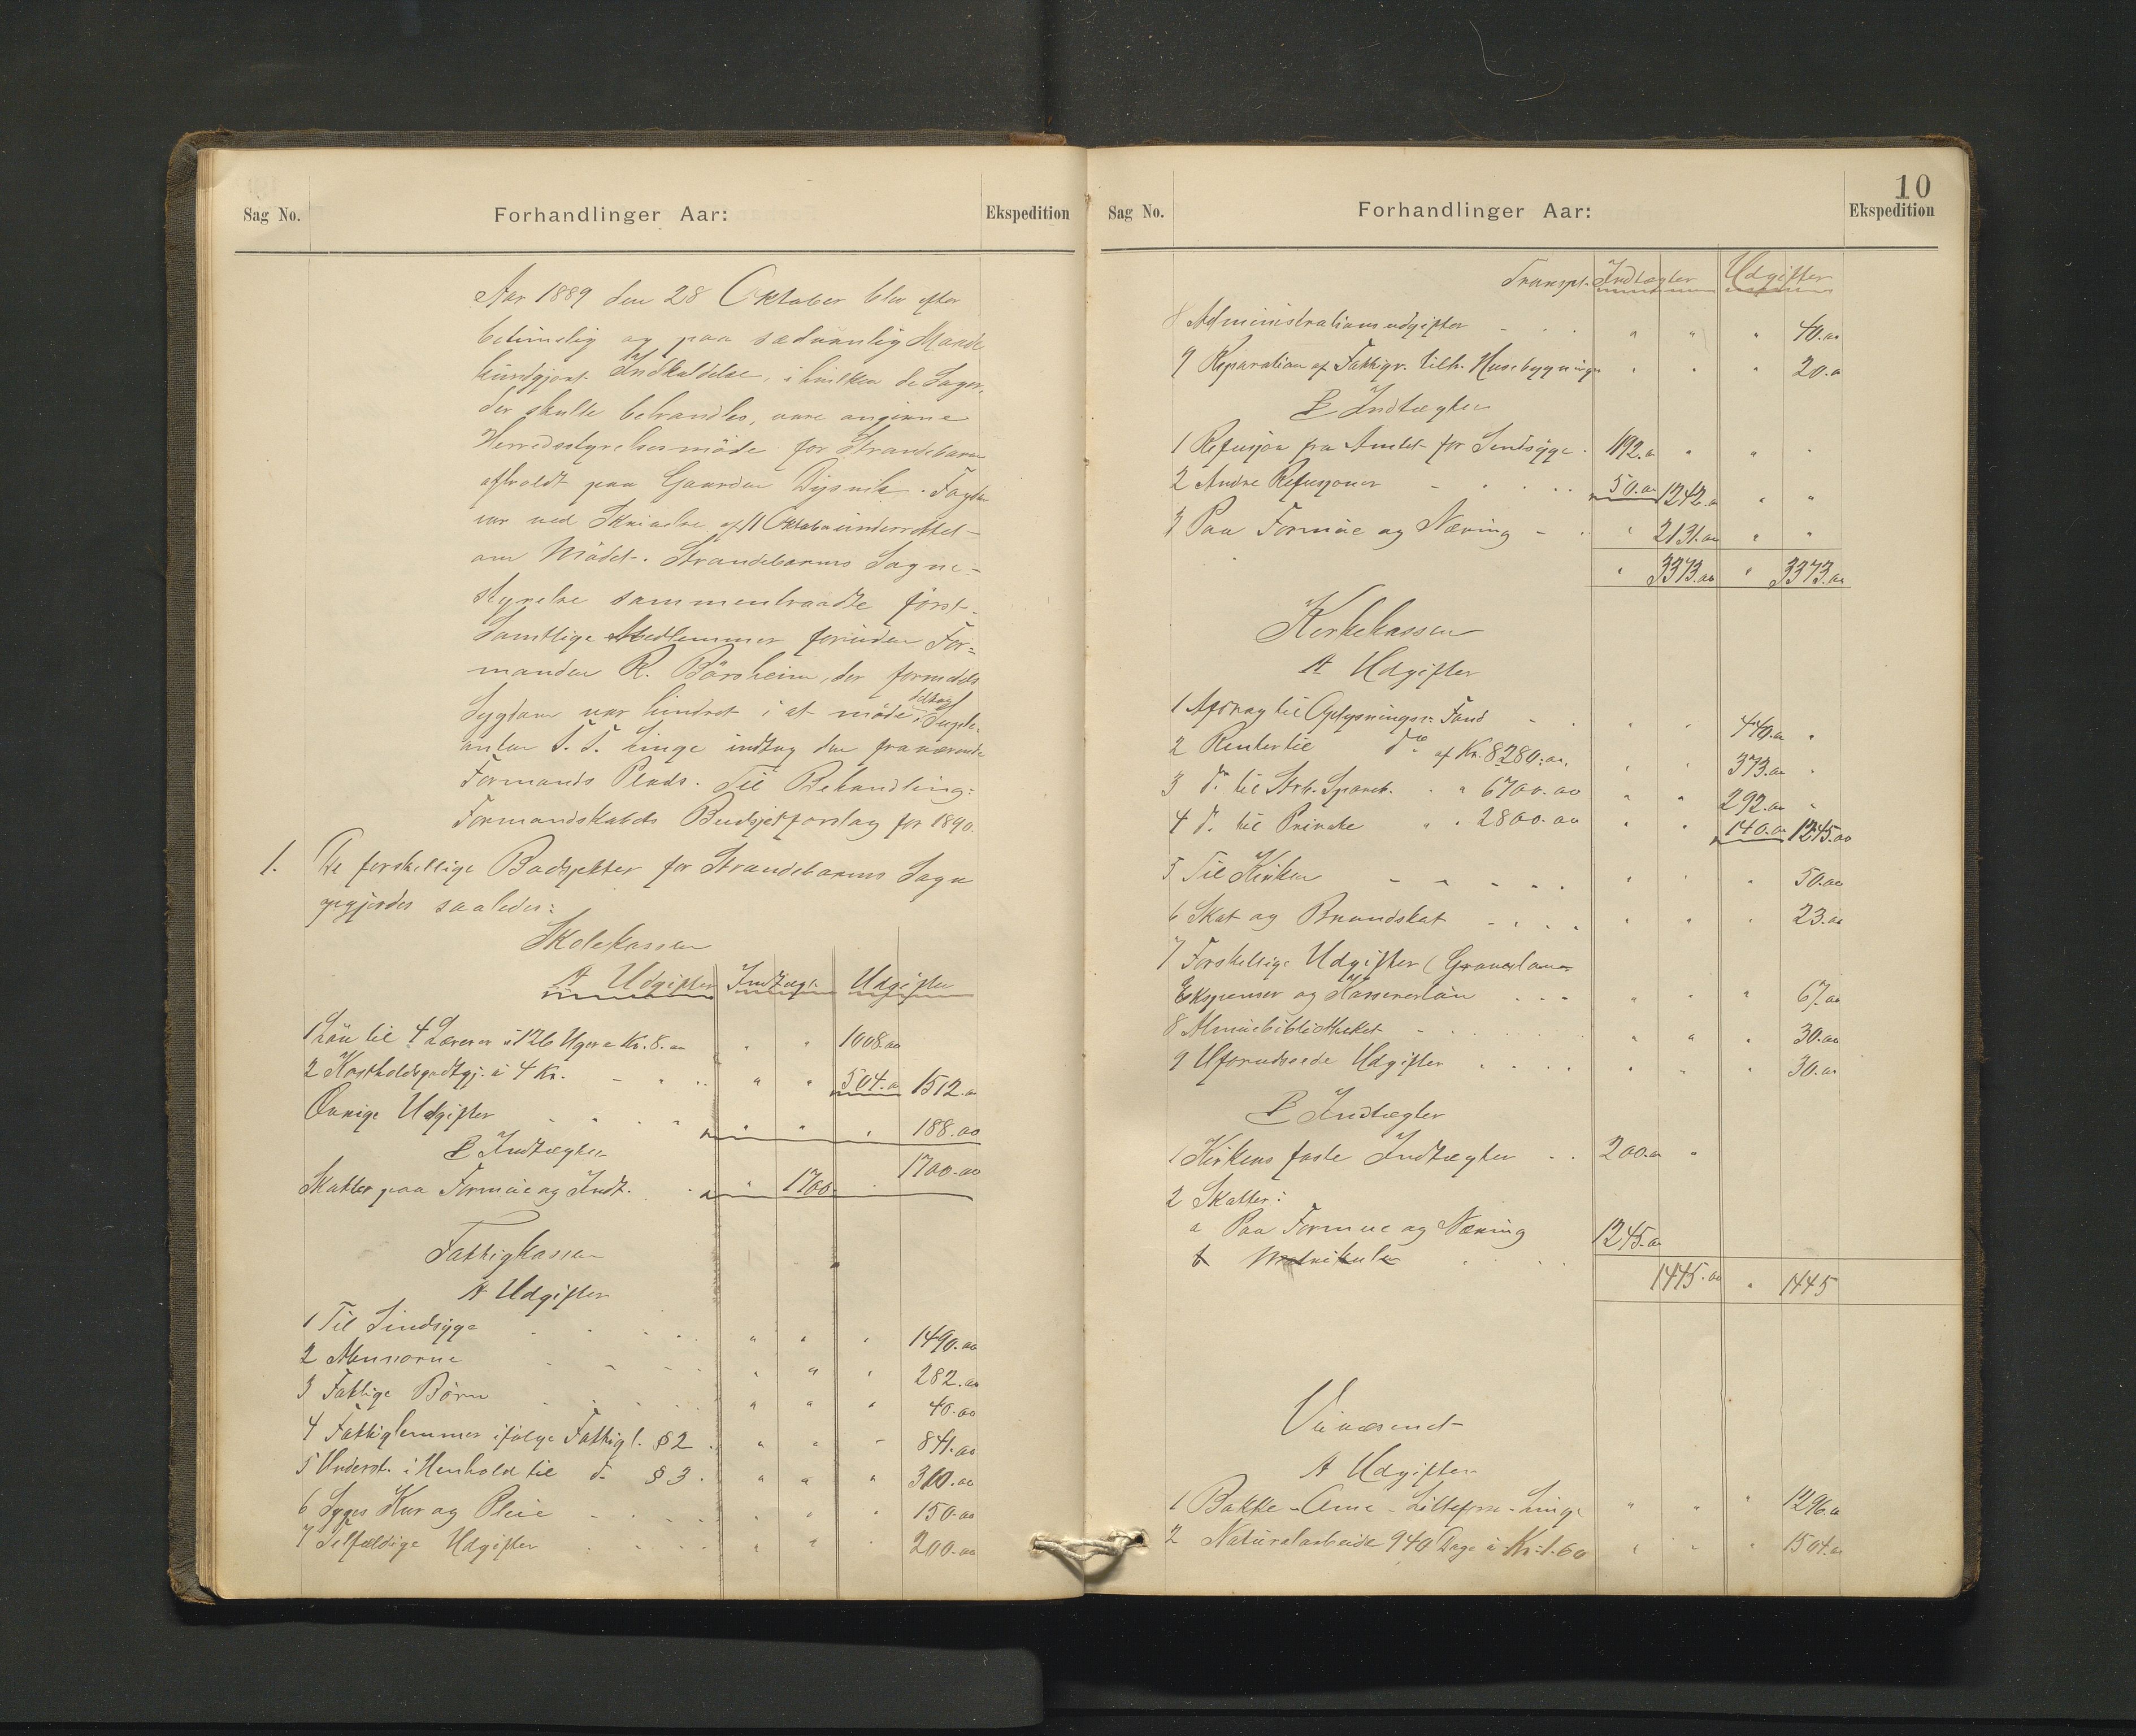 Sag No. Forhandlinger Aar: Ekspedition
Aar 1889 den 28 Oktober blev efter
betimelig og paa sædvanlig Maade
kundgjort Indkaldelse, i hvilken de Sager,
der skulle behandles, vare angivne
Herredsstyrelsesmöde for Strandebarm
afholdt paa Gaarden Dysvik. Fogden
var ved Skrivelse af 11 Oktober underrettet
om Mödet. Strandebarms Sogne-
styrelse sammentraadte først.
Samtlige Medlemmer foruden For=
manden R. Börsheim, der formedels
Sygdom var hindret i at möde deltog Supple-
anten T. T. Linge indtog den fraværende
Formands Plads. Til Behandling:
Formandskabets Budsjetforslag for 1890.
1. De forskellige Budsjetter for Strandebarms Sogn
opgjordes saaledes:
Skolekassen
A Udgifter Indtægt. Udgifter
1 Lön til 4 Lærere i 126 Uger a Kr. 8.00 " " 1008.00
2 Kostholdsgodtgj. á 4 Kr. " " 504.00 1512.00
Övrige Udgifter " " " 188.00
B Indtægter 1700.00
Skatter paa Formue og Indt. " 1700 "
Fattigkassen
A Udgifter
1 Til Sindsyge " " " 1490.00
2 " " " 282.00
3 Fattige Börn " " " 40.00
4 Fattiglemmer ifölge Fattigl. § 2 " " " 841.00
5 Underst. i Henhold til do § 3. " " " 310.00
6 Syges Kur og Pleie " " " 150.00
7 Tilfældige Udgifter " " " 200.00
10
Sag No. Forhandlinger Aar: Ekspedition
Transpt. Indtægter Udgifter
8 Administrationsudgifter " " " 40.00
9 Reparation af Fattigv. tilh. Husebygninger " " " 20.00
B Indtægter
1 Refusjon fra Amtet for Sindsyge 1192.00 " " "
2 Andre Refusjoner 50.00 1242.00 " "
3 Paa Formue og Næring " 2131.00 " "
" 3373.00 " 3373.00
Kirkekassen
A Udgifter
1 Afdrag til Oplysnings: Fond " " 440.00 "
2 Renter til do af Kr. 8280.00. " " 373.00 "
3 do til Strb. Spareb. " " 6700.00 " " 292.00 "
4 do til Private " " 2800.00 " " 140.00 1245.00
5 Til Kirken " " " 50.00
6 Skat og Brandskat " " " 23.00
7 Forskellige Udgifter (
Ekspenser og Kassererlön " " " 67.00
8 Almuebibliotheket " " " 30.00
9 Uforudseede Udgifter " " " 30.00
B Indtægter
1 Kirkens faste Indtægter 200.00 "
2 Skatter:
a Paa Formue og Næring 1245.00
b Matrikulen
1445.00 " 1445
Veivæsenet
A Udgifter
1 Bakke - - - Linge " " " 1296.00
2 Naturalarbeide 940 Dage á Kr. 1.60 " " " 1504.00